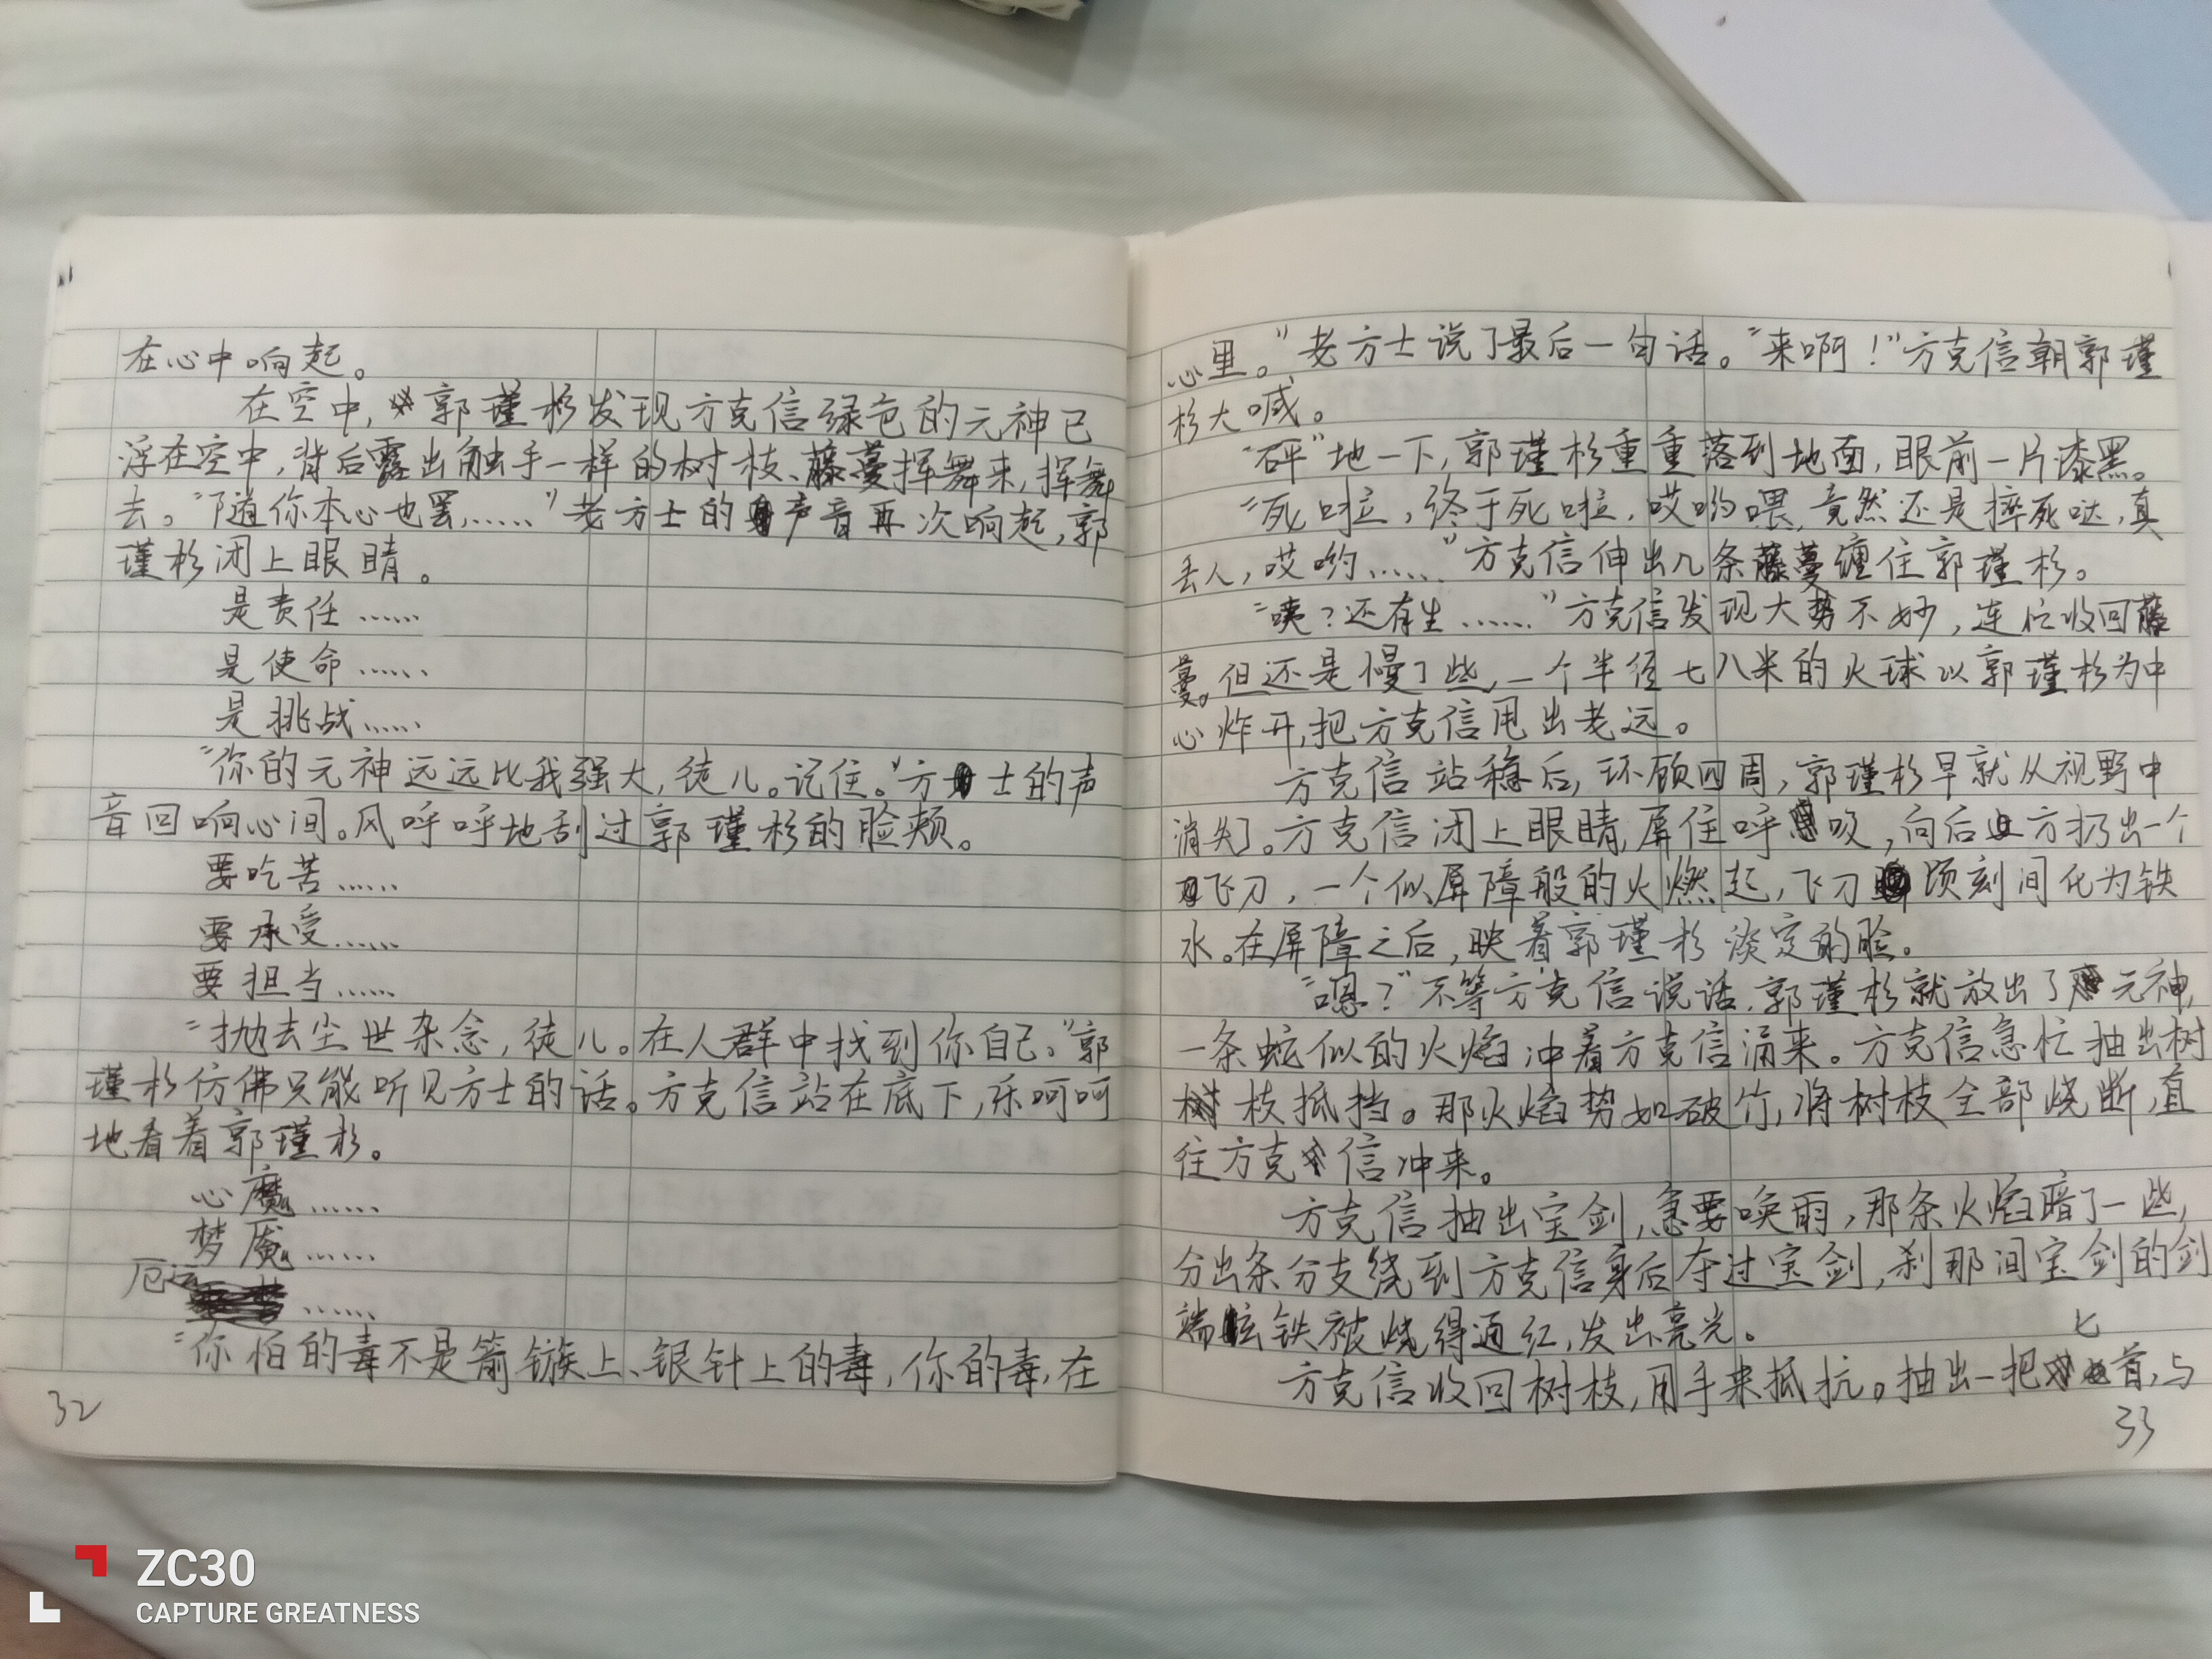 在心中响起。
在空中，郭瑾杉发现方克信绿色的元神已
浮在空中，背后露出触手一样的树枝、藤蔓挥舞来，挥舞
去。“随你本心也罢……”老方士的声音再次响起，郭
瑾杉闭上眼睛。
是责任……
是使命……
是挑战……
“你的元神远远比我强大，徒儿。记住。”方士的声
音回响心间。风呼呼地刮过郭瑾杉的脸颊。
要吃苦……
要承受……
要担当……
“抛去尘世杂念，徒儿。在人群中找到你自己。”郭
瑾杉仿佛只能听见方士的话。方克信站在底下，乐呵呵
地看着郭瑾杉。
心魔……
梦魇……
厄运……
“你怕的毒不是箭镞上、银针上的毒，你的毒，在
32
心里。”老方士说了最后一句话。“来啊！”方克信朝郭瑾
杉大喊。
“砰”地一下，郭瑾杉重重落到地面，眼前一片漆黑。
“死啦，终于死啦，哎哟喂，竟然还是摔死哒，真
丢人，哎哟……”方克信伸出几条藤蔓缠住郭瑾杉。
“咦？还有生……”方克信发现大势不妙，连忙收回藤
蔓。但还是慢了些，一个半径七八米的火球以郭瑾杉为中
心炸开，把方克信甩出老远。
方克信站稳后，环顾四周，郭瑾杉早就从视野中
消失了。方克信闭上眼睛，屏住呼吸，向后方扔出一个
飞刀，一个似屏障般的火燃起，飞刀顷刻间化为铁
水。在屏障之后，映着郭瑾杉淡定的脸。
“嗯？”不等方克信说话，郭瑾杉就放出了元神，
一条蛇似的火焰冲着方克信涌来。方克信急忙抽出树
树枝抵挡。那火焰势如破竹，将树枝全部烧断，直
往方克信冲来。
方克信抽出宝剑，急要唤雨，那条火焰暗了一些，
分出条分支绕到方克信身后夺过宝剑，刹那间宝剑的剑
端铁被烧得通红，发出亮光。
方克信收回树枝，用手来抵抗。抽出一把匕首，与
33
ZC30
CAPTURE GREATNESS